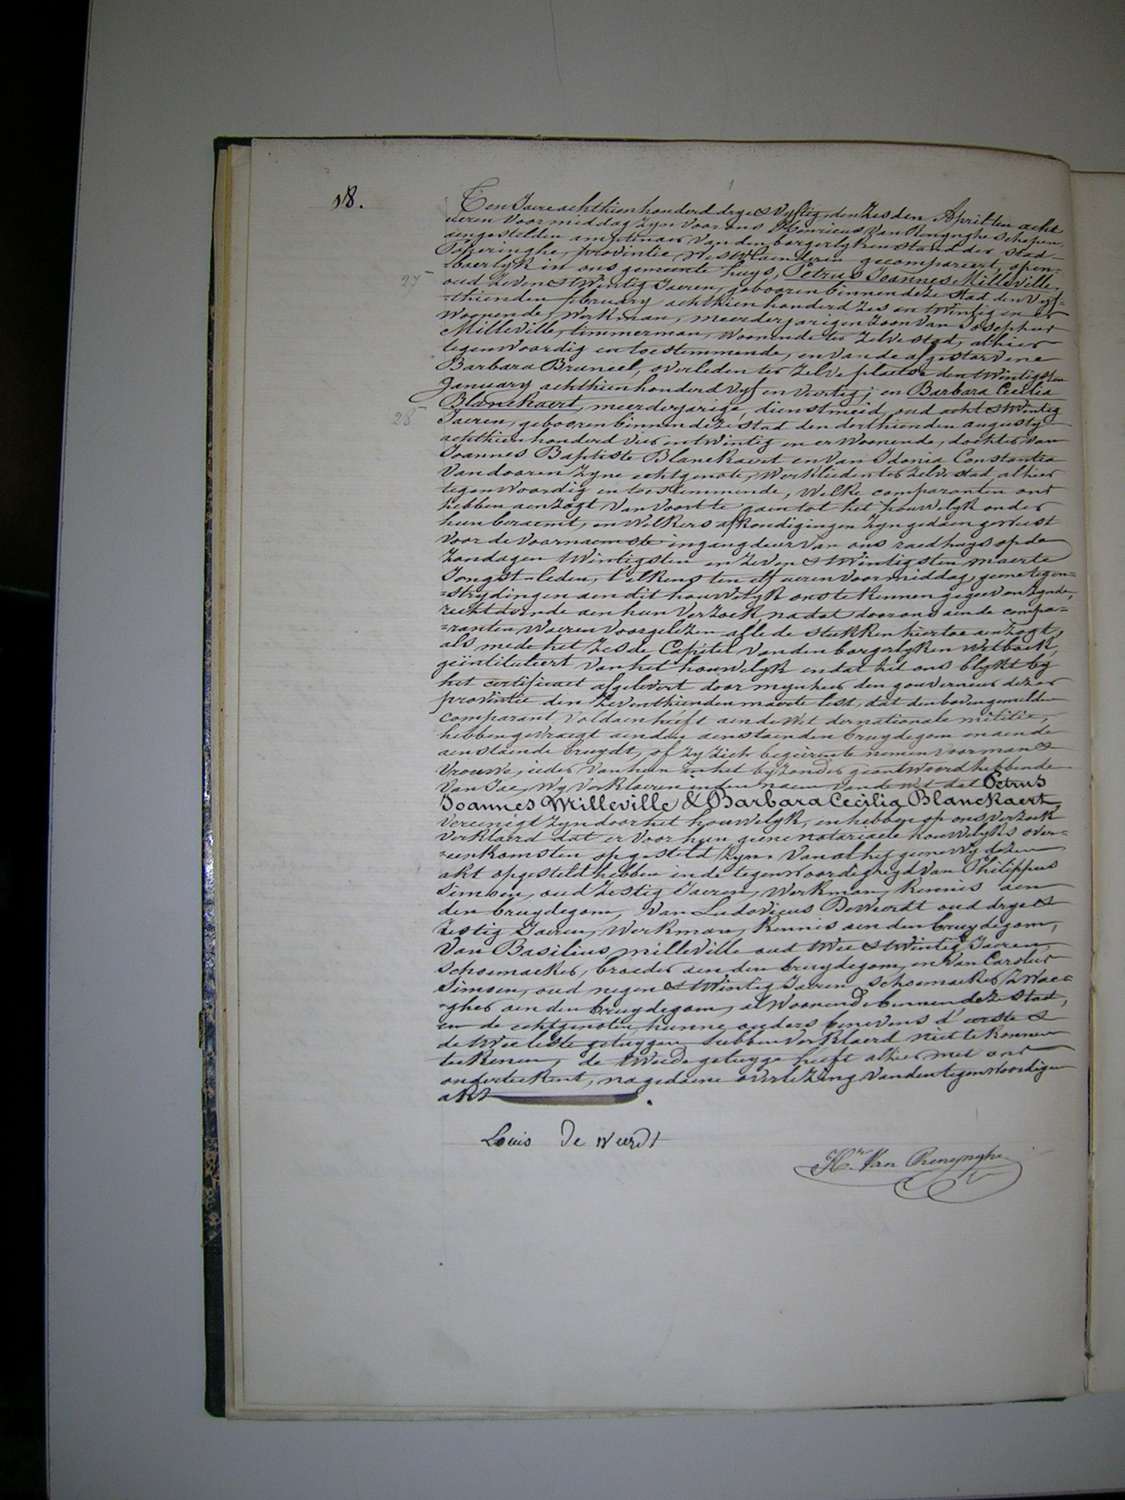 18.
Ten Jaere achthien honderd drye & vyftig, den zesden April ten acht
ueren voormiddag zyn voor ons Henricus Van Renynghe schepen,
aengestelden amptenaer van den borgerlyken stand der stad
Poperinghe, provintie Westvlaenderen gecompareert, open-
baerlyk in ons gemeente huys, Petrus Joannes Milleville
27
oud zeven & twintig Jaeren, geboren binnen deze stad den vyf-
-thienden february achthien honderd zes en twintig en er
woonende, werkman, meerderjarigen zoon van Josephus
Milleville, timmerman, woonende ter zelve stad, alhier
tegenwoordig en toestemmende, en van de afgestorvene
Barbara Bruneel, overleden ter zelve plaetse den twintigsten
January achthien honderd vyf en veertig; en Barbara Cecilia
Blanckaert, meerderjarige, dienstmeid, oud acht & twintig
28
Jaeren, geboren binnen deze stad den derthienden augusty
achthien honderd vier en twintig en er woonende, dochter van
Joannes Baptiste Blanckaert en van Idonia Constantia
Vandooren zyne echtgenote, werklieden ter zelve stad alhier
tegenwoordig en toestemmende, welke comparanten ons
hebben aenzogt van voort te gaen tot het houwelyk onder
hun beraemt, en welkers afkondigingen zyn gedaen geweest
voor de voornaemste ingangdeur van ons raedhuys op de
zondagen twintigsten en zeven & twintigsten maerte
Jongstleden, t'elkens ten elf ueren voormiddag, geene tegen-
-strydingen aen dit houwelyk ons te kennen gegeven zynde,
recht doende aen hun verzoek nadat door ons aen de compa-
-ranten, waeren voorgelezen alle de stukken hiertoe aenzogt,
als mede het zesde Capitel van den borgerlyken wetboek,
geintituleert van het houwelyk en dat het ons blykt by
het certificaet afgelevert door mynheer den gouverneur dezer
provintie den zeventhienden maerte lest, dat den bovengemelden
comparant voldaen heeft aen de wet der nationale militie,
hebben gevraegt aen den aenstaenden bruydegom en aen de
aenstaende bruydt, of zy zich begeirente nemen voor man &
vrouwe, ieder van hun in het byzonder geantwoord hebbende
van Jae, wy verklaeren in den naem van de wet dat Petrus
Joannes Milleville & Barbara Cecilia Blanckaert,
vereenigt zyn door het houwelyk, en hebben op ons verzoek
verklaerd dat er voor hun geene notariaele houwelyks over-
-eenkomsten opgesteld zyn. Van al het geene wy dezen
akt opgesteld hebben in de tegenwoordigheyd van Philippus
Simoen, oud zestig Jaeren, werkman, kennis aen
den bruydegom, van Ludovicus Deweerdt oud drye &
zestig Jaeren, werkman, kennis aen den bruydegom,
van Basilius Milleville oud twee & twintig Jaeren,
schoemaeker, broeder aen den bruydegom, en van Carolus
Simoen, oud negen & twintig Jaeren, schoemaeker, zwae-
-gher aen den bruydegom, al woonende binnen deze stad,
en de echtgenoten, hunne ouders benevens d'eerste &
de twee leste getuygen hebben verklaerd niet te konnen
teekenen, de tweede getuyge heeft alhier met ons
onderteekent, nagedaene overlezing van den tegenwoordigen
akt.
Louis De Weerdt
Hri Van Renynghe